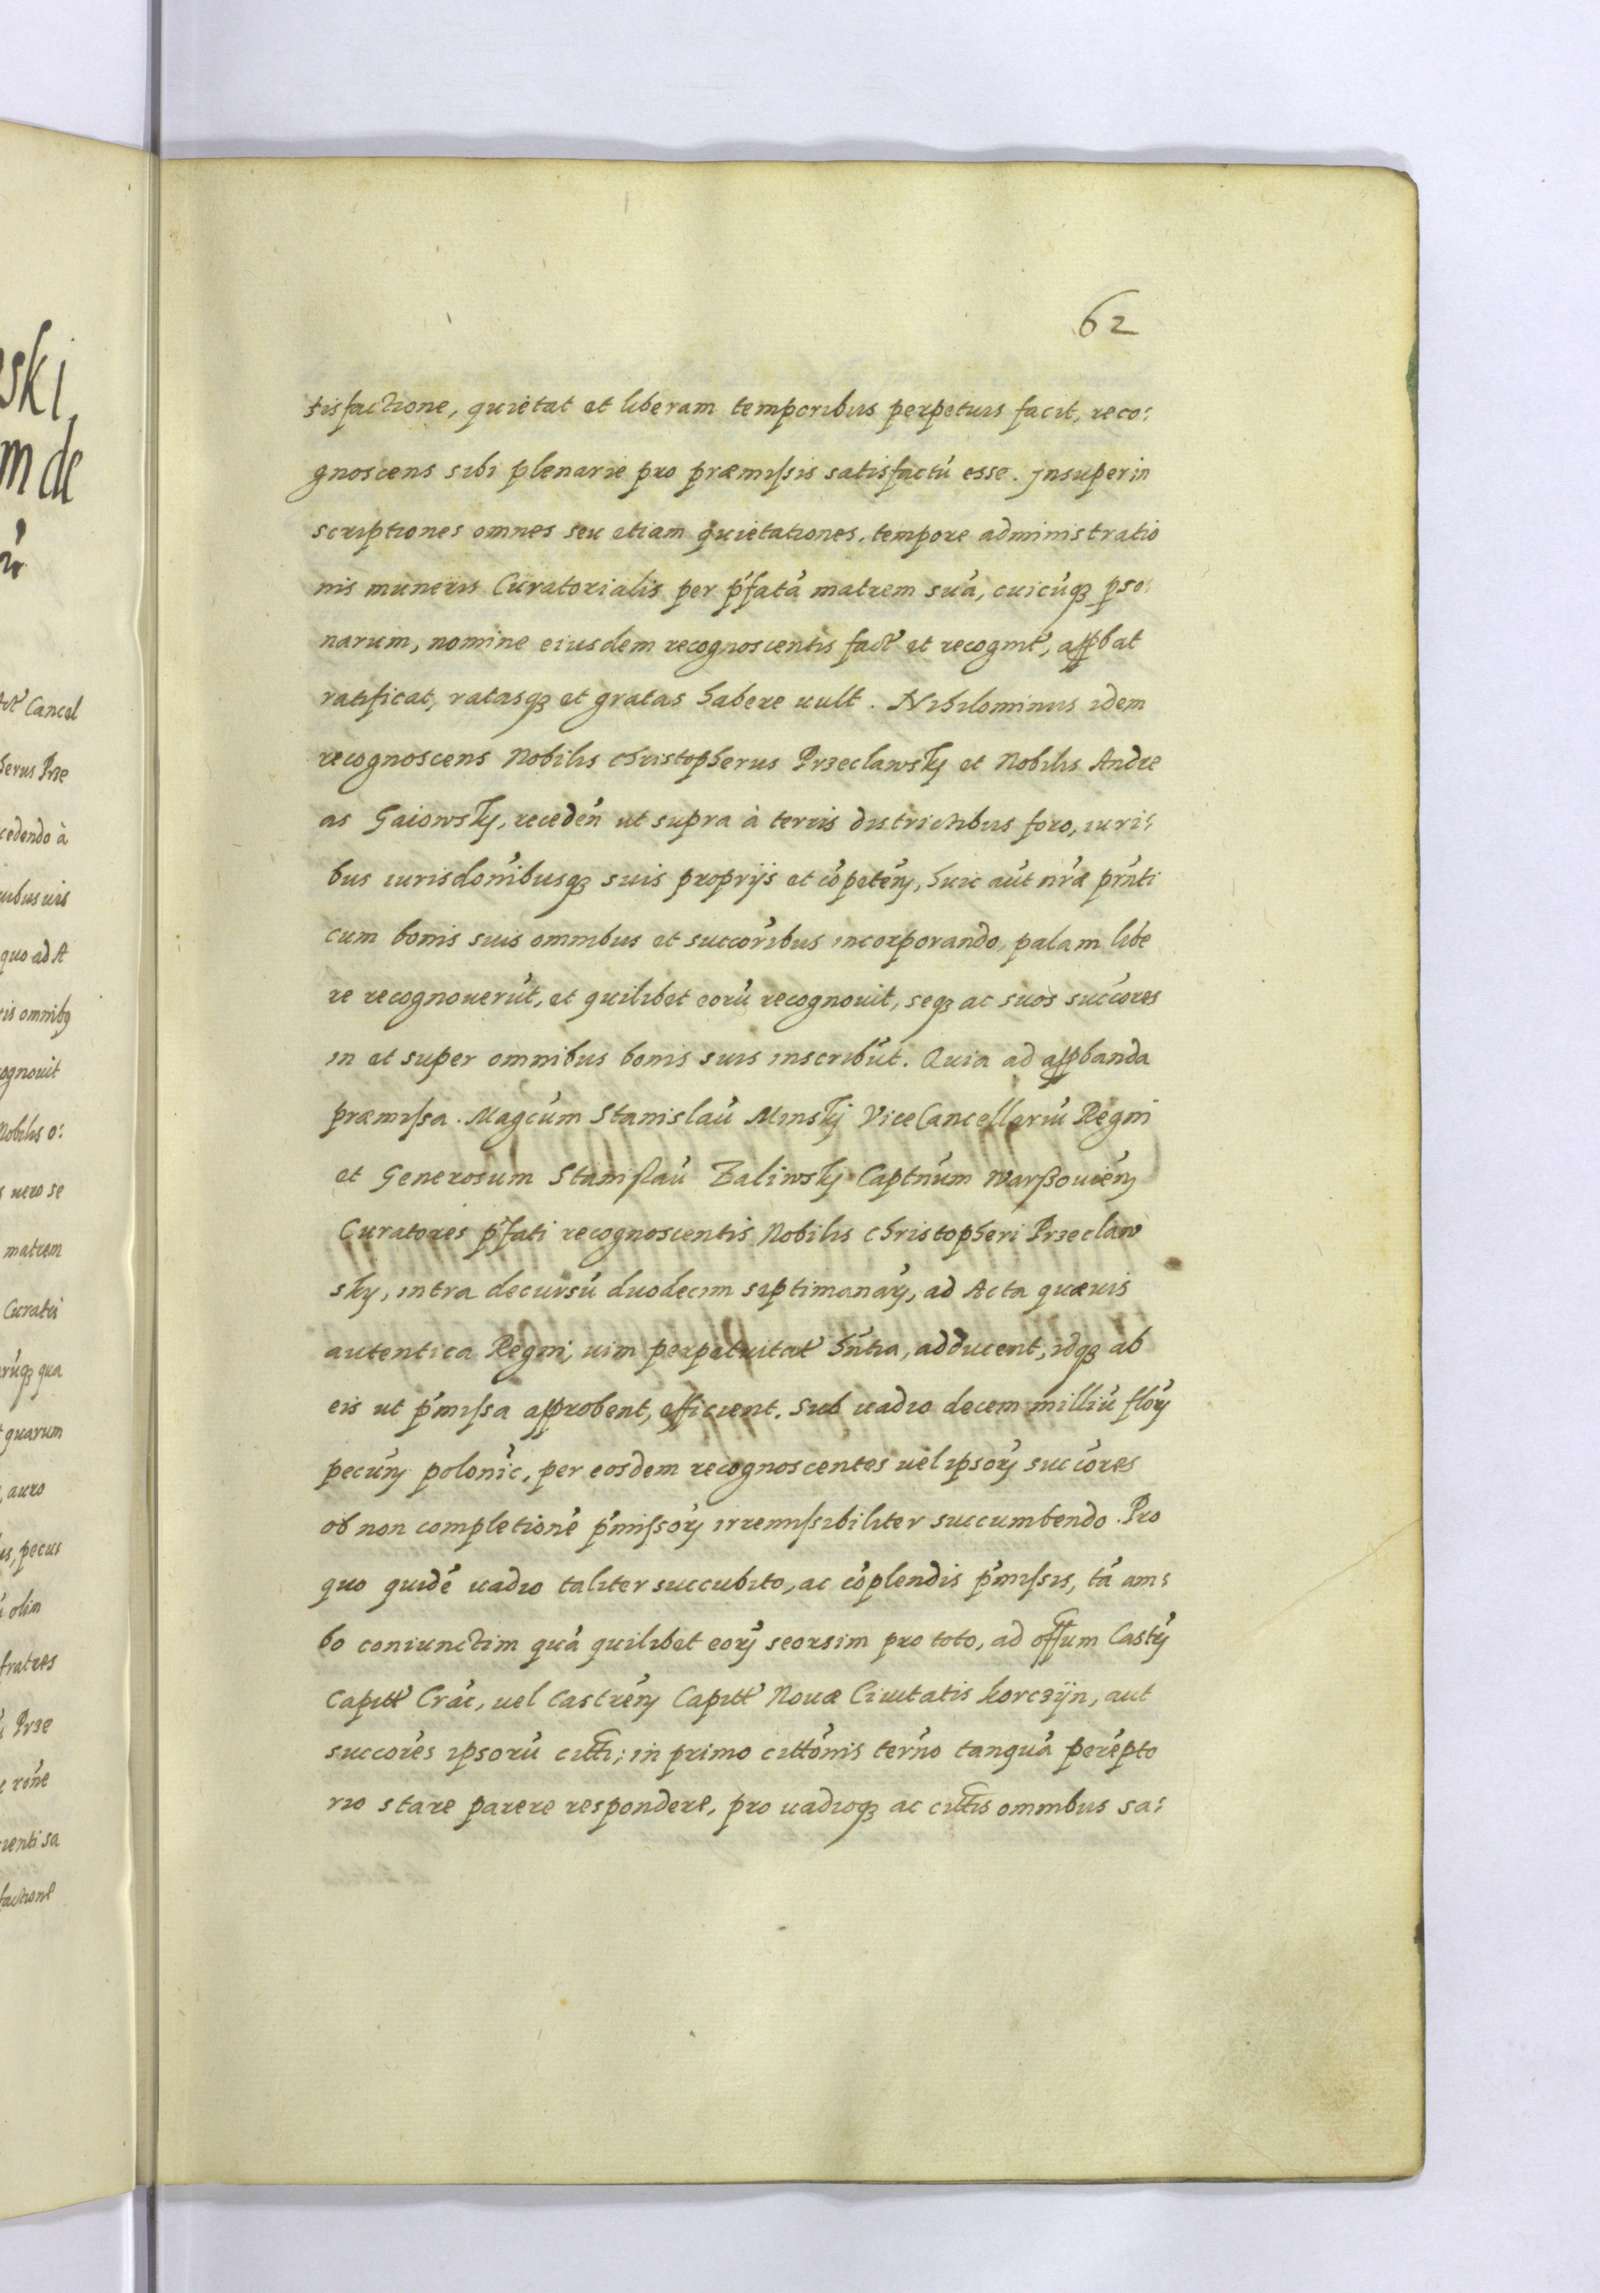 62
tisfactione, quietat et liberam temporibus perpetuis facit, reco:
gnoscens sibi plenarie pro præmissis satisfactū esse. Insuper in
scriptiones omnes seu etiam quietationes, tempore administratio
nis muneris Curatorialis per p̄fatā matrem suā, cuicūqꝫ pso:
narum, nomine eiusdem recognoscentis fact' et recognit', appbat
ratificat, ratasqꝫ et gratas habere uult. Nihilominus idem
recognoscens Nobilis Christopherus Przeclawsky et Nobilis Andre
as Gaiowsky, receden̄ ut supra à terris districtibus foro, iuri:
bus iurisdōnibusqꝫ suis proprijs et cōpeteñ, huic aūt nr̄æ pn̄ti
cum bonis suis omnibus et succōribus incorporando, palam libe
re recognouerūt, et quilibet eorū recognouit, seqꝫ ac suos succōres
in et super omnibus bonis suis inscribūt. Quia ad appbanda
præmissa. Magcūm Stanislaū Minsky ViceCancellariū Regni
et Generosum Stanislaū Zaliwsky Captn̄um Warßouień
Curatores p̄fati recognoscentis Nobilis Christopheri Przeclaw
sky, intra decursū duodecim septimanaꝝ, ad Acta quæuis
autentica Regni, uim perpetuitat' hn̄tia, adducent, idqꝫ ab
eis ut p̄missa approbent, efficient. Sub uadio decem milliū floꝝ
pecuń polonic̄, per eosdem recognoscentes uel ipsoꝝ succōres
ob non completionē p̄missoꝝ irremissibiliter succumbendo. Pro
quo quidē uadio taliter succubito, ac cōplendis p̄missis, tā am:
bo coniunctim quā quilibet eoꝝ seorsim pro toto, ad offm̄ Castrꝫ
Capitt' Crac̄, uel Castreń Capitt' Nouæ Ciuitatis korczijn, aut
succōres ipsorū citti; in primo cittōnis term̄o tanquā perēpto
rio stare parere respondere, pro uadioqꝫ ac cittis omnibus sa: